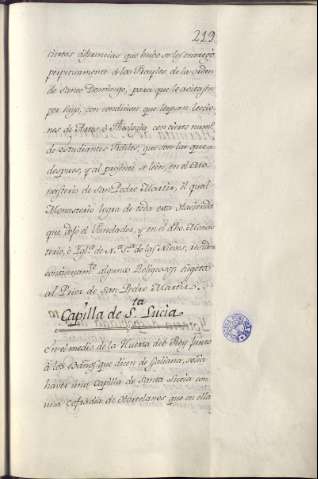 219.
ciertas diferencias que hubo se les entregó
perpetuamente à los Frayles de la orden
de Santo Domingo, para que le acitasen
por suyo, con condicion que leyesen leccio
nes de Artes, ò Theologia, con cierto num.º
de estudiantes Frailes, que son los que
despues, y al presente se leen, en el Mo
nasterio de San Pedre Martir, el qual
Monasterio logra de toda esta Hacienda
que dexó el Fundador, y en el dho. Monas
terio, è Igl.ª de N.ª S.ª de las Nieves, residen
continuam.te algunos Religiosos sugetos
al Prior de San Pedro Martir.
Capilla de S.ta Lucia
En el medio de la Huerta del Rey junto
à los Baños que dicen de Galiana, solia
haver una Capilla de Santa Lucia con
una Cofradia de Hortelanos que en ella